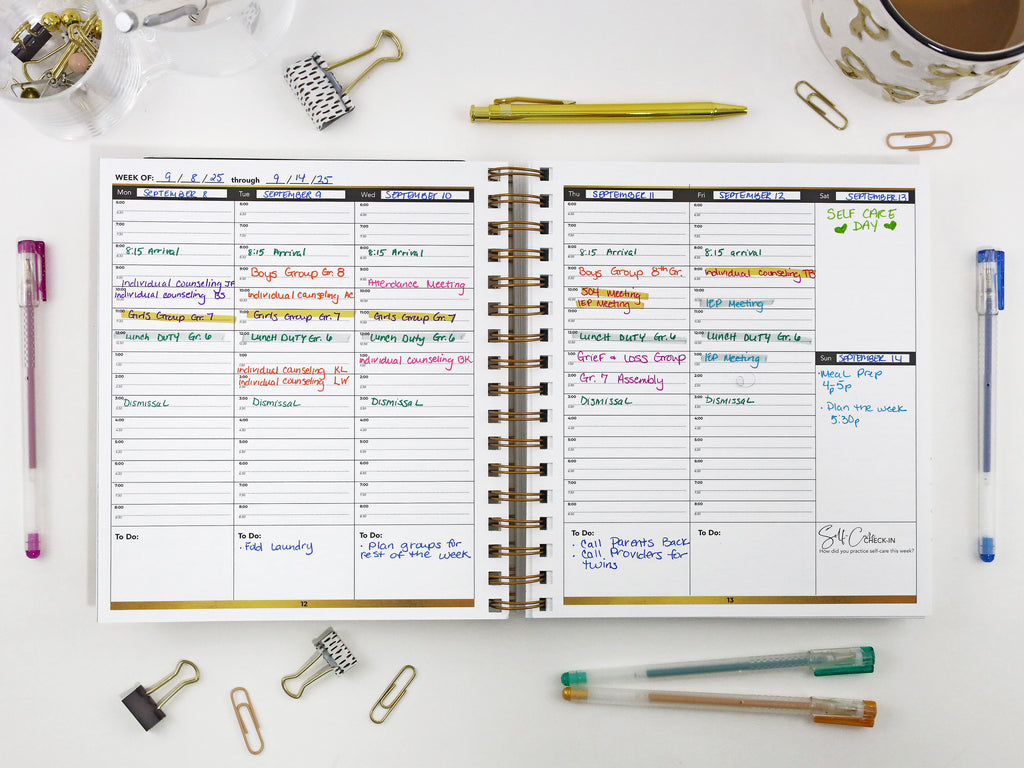 WEEK OF: 9 / 8 / 25 through 9 / 14 / 25
Mon SEPTEMBER 8
8:15 Arrival
Individual Counseling JF
Individual counseling BS
Girls Group Gr. 7
Lunch DUTY Gr. 6
Dismissal
To Do:
Tue SEPTEMBER 9
8:15 Arrival
Boys Group Gr. 8
individual Counseling AC
Girls Group Gr. 7
LUNCH DUTY Gr. 6
individual counseling KL
individual counseling LW
Dismissal
To Do:
· Fold Laundry
Wed SEPTEMBER 10
8:15 Arrival
Attendance Meeting
Girls Group Gr. 7
Lunch Duty Gr. 6
individual counseling BK
Dismissal
To Do:
· Plan groups for
rest of the week
12
Thu SEPTEMBER 11
8:15 Arrival
Boys Group 8th Gr.
504 Meeting
IEP Meeting
LUNCH DUTY Gr. 6
Grief & Loss Group
Gr. 7 Assembly
Dismissal
To Do:
· Call Parents Back
· Call Providers for
twins
Fri SEPTEMBER 12
8:15 arrival
individual counseling TB
IEP Meeting
LUNCH DUTY Gr. 6
IEP Meeting
Dismissal
To Do:
Sat SEPTEMBER 13
SELF CARE
DAY
Sun SEPTEMBER 14
· Meal Prep
4-5p
· Plan the week
5:30p
Self-Care CHECK-IN
How did you practice self-care this week?
13